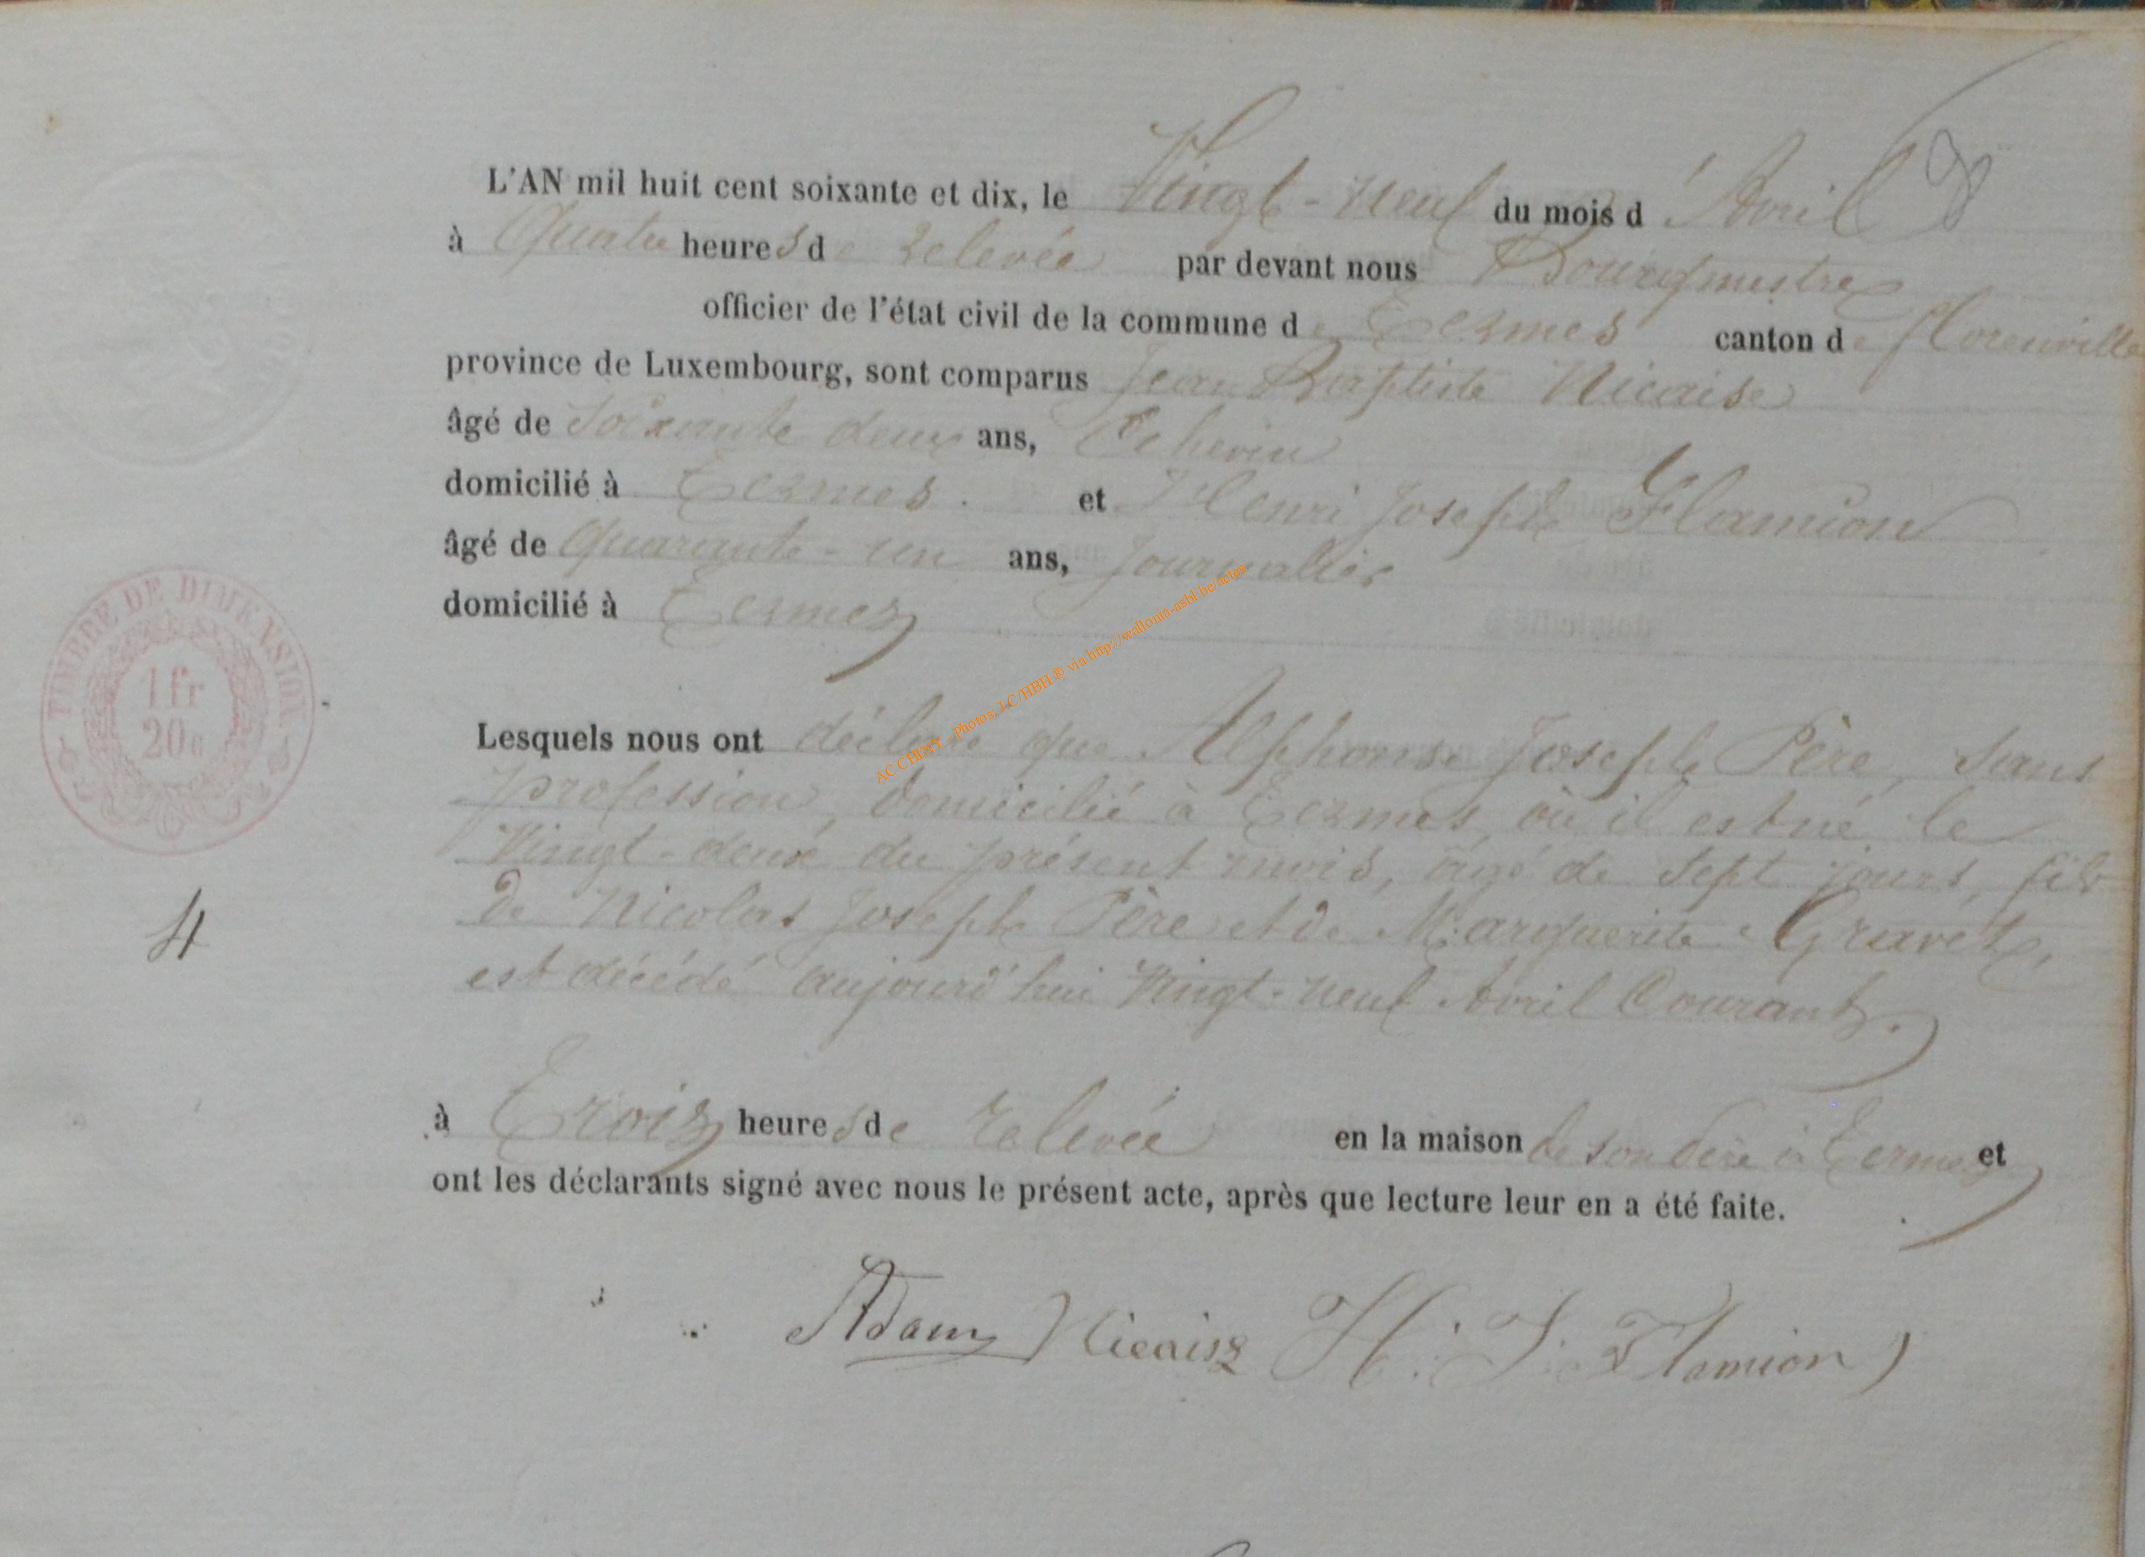 L'AN mil huit cent soixante et dix, le Vingt-neuf du mois d'Avril
à Quatre heures de relevée par devant nous Bourgmestre
officier de l'état civil de la commune de Termes canton de florenville
province de Luxembourg, sont comparus Jean Baptiste Nicaise
âgé de Soixante deux ans, Echevin
domicilié à Termes. et Henri Joseph Flamion
âgé de Quarante-un ans, Journalier
domicilié à Termes
TIMBRE DE DIMENSION
1 fr
20 c
Lesquels nous ont déclaré que Alphonse Joseph Père, sans
profession, domicilié à Termes, où il est né le
Vingt-deux du présent mois, âgé de sept jours, fils
de Nicolas Joseph Père et de Marguerite Gravet,
est décédé aujourd'hui Vingt-neuf Avril Courant.
4
à Trois heures de relevée en la maison de son père à Termes et
ont les déclarants signé avec nous le présent acte, après que lecture leur en a été faite.
Adam Nicaise H. J. Flamion
AC CHINY - Photos: J-C/HBH ® via http://wallonia-asbl.be/actes